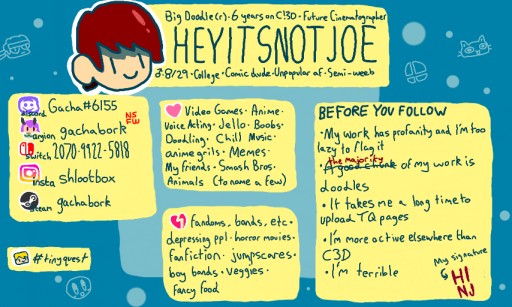 Big Doodle(r) · 6 years on C!3D · Future Cinematographer
HEYITSNOTJOE
♂ · 8/29 · College · Comic dude · Unpopular af · Semi-weeb
discord
Gacha#6155
gachabork
NSFW
switch
2070-9922-5818
insta
shlootbox
steam
gachabork
#tinyquest
Video Games · Anime ·
Voice Acting · Jello · Boobs ·
Doodling · Chill Music ·
anime grils · Memes ·
My friends · Smash Bros.
Animals (to name a few)
fandoms, bands, etc ·
depressing ppl · horror movies ·
fanfiction · jumpscares ·
boy bands · veggies ·
fancy food
BEFORE YOU FOLLOW
· My work has profanity and I'm too
lazy to flag it
the majority
· A good chunk of my work is
doodles
· It takes me a long time to
upload TQ pages
· I'm more active elsewhere than
C3D
· I'm terrible
My signature
HI
NJ